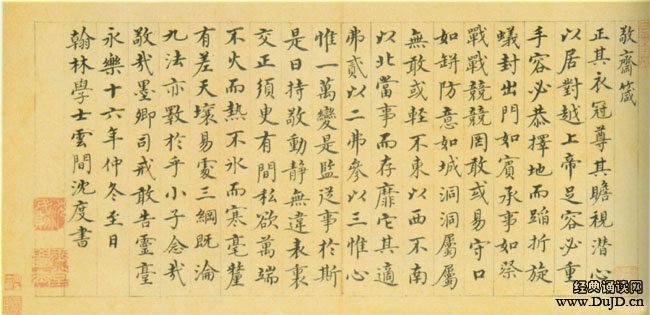 敬齋箴
正其衣冠尊其瞻視潛心
以居對越上帝足容必重
手容必恭擇地而蹈折旋
蟻封出門如賓承事如祭
戰戰兢兢罔敢或易守口
如缾防意如城洞洞屬屬
無敢或輕不東以西不南
以北當事而存靡它其適
弗貳以二弗參以三惟心
惟一萬變是監從事於斯
是曰持敬動靜無違表裏
交正須臾有間私欲萬端
不火而熱不冰而寒毫釐
有差天壤易處三綱既淪
九法亦斁於乎小子念哉
敬哉墨卿司戒敢告靈臺
永樂十六年仲冬至日
翰林學士雲間沈度書
经典诵读网
www.DuJD.cn